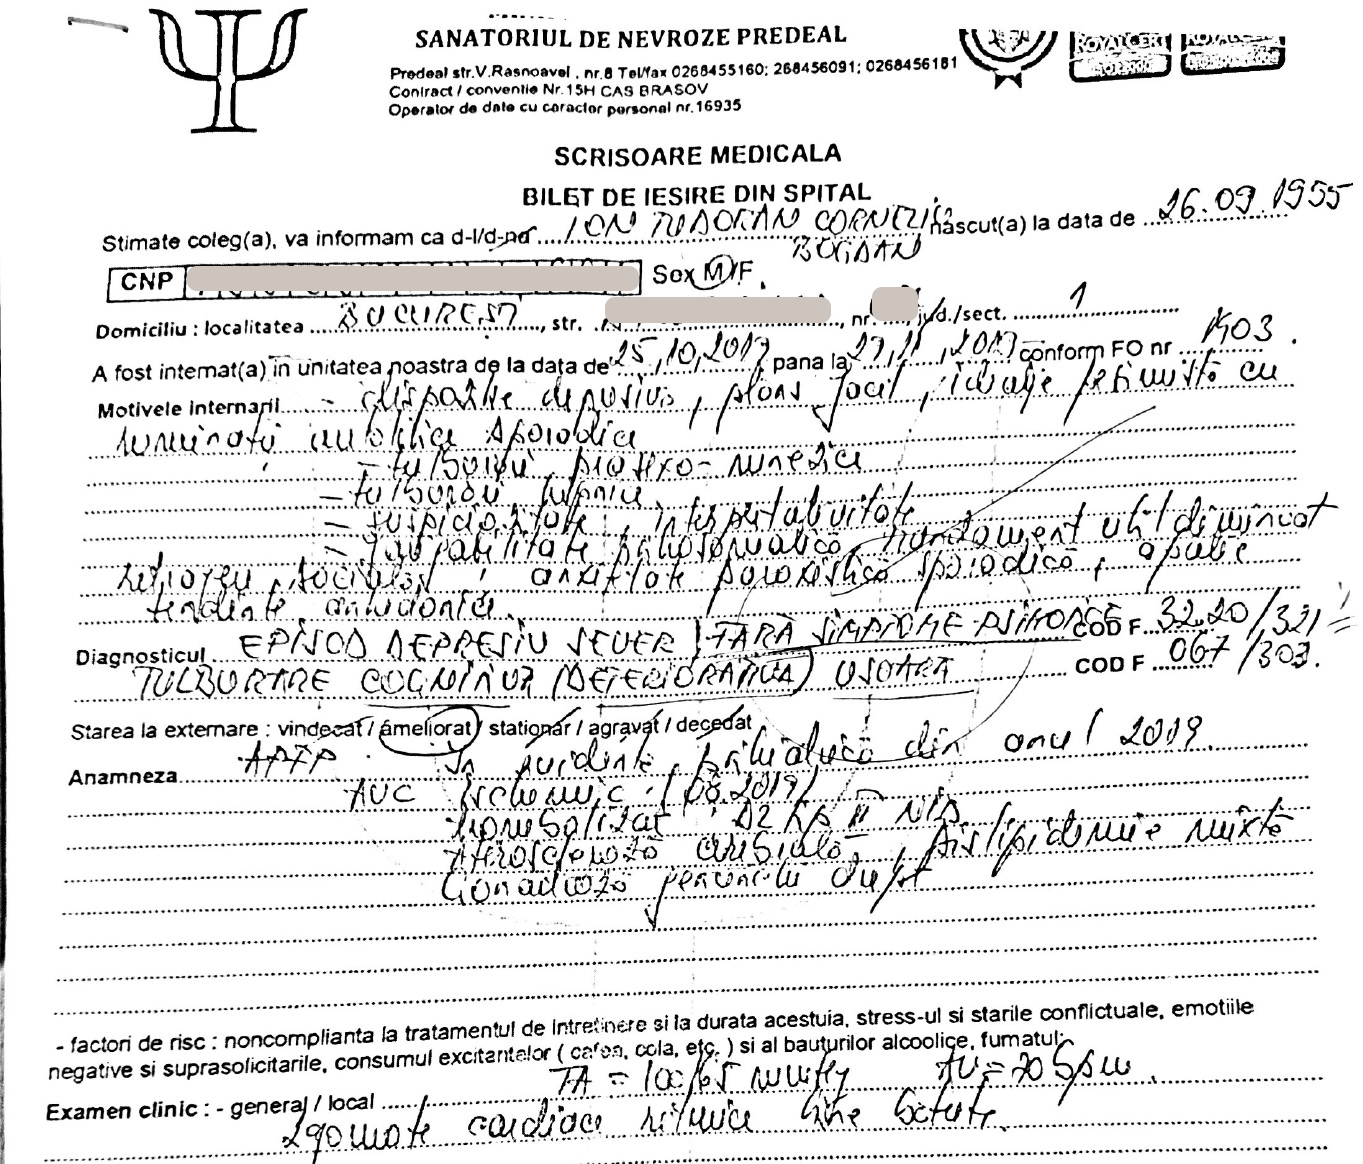 SANATORIUL DE NEVROZE PREDEAL
Predeal str.V.Rasnoavei , nr.8 Tel/fax 0268455160; 268456091; 0268456181
Contract / conventie Nr.15H CAS BRASOV
Operator de date cu caracter personal nr.16935
ROYALCERT
SCRISOARE MEDICALA
BILET DE IESIRE DIN SPITAL
Stimate coleg(a), va informam ca d-l/d-na ION TUDORAN CORNELIU născut(a) la data de 26.09.1955
BOGDAN
CNP Sex M/F.
Domiciliu : localitatea BUCURESTI, str. , nr. jud./sect. 1
A fost internat(a) în unitatea noastra de la data de 25,10,2019 pana la 27,11,2019 conform FO nr 1403.
Motivele internarii - dispozitie depresiva, plans facil, ideatie pesimistă cu
ruminatii autolitice sporadice
- tulburari prosexo-mnezice
- tulburari hipnice
- suspiciozitate, interpretabilitate
- randament util diminuat
retragere sociala, anxietate paroxistică sporadică, apatie
tendinte anhedonice.
Diagnosticul EPISOD DEPRESIV SEVER FARA SIMPTOME PSIHOTICE COD F 32.20/321
TULBURARE COGNITIVA (DETERIORATIVA) USOARA COD F 067/303.
Starea la externare : vindecat / ameliorat / stationar / agravat / decedat
Anamneza APP In evidenta psihiatrică din anul 2019.
AVC Ischemic (08.2019)
DZ tip II NID
Ateroscleroză cerebrală, Dislipidemie mixtă
Gonartroză genunchi drept
- factori de risc : noncomplianta la tratamentul de intretinere si la durata acestuia, stress-ul si starile conflictuale, emotiile
negative si suprasolicitarile, consumul excitantelor ( cafea, cola, etc. ) si al bauturilor alcoolice, fumatul;
TA = 100/65 mmHg AV = 70 bpm.
Examen clinic : - general / local
zgomote cardiace ritmice bine batute.